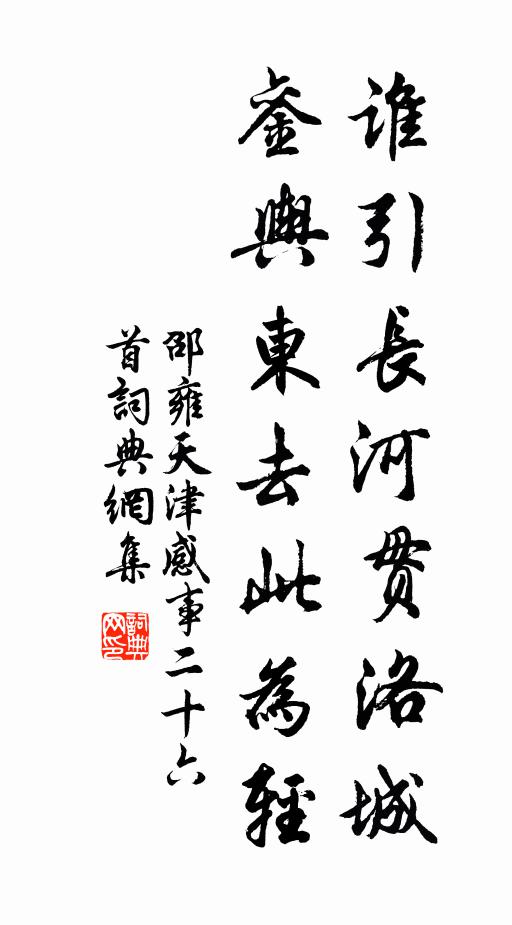 誰引長河貫洛城
鑾輿東去此為輕
邵雍天津感事二十六
首詞典網集
詞典網印